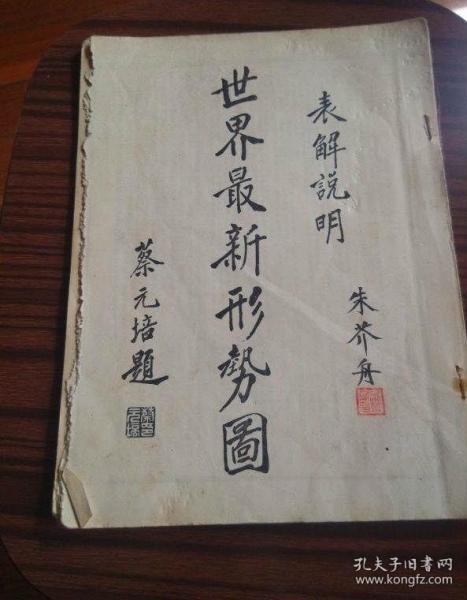 表解說明
朱芥舟
世界最新形勢圖
蔡元培題
蔡元培印
孔夫子旧书网
www.kongfz.com